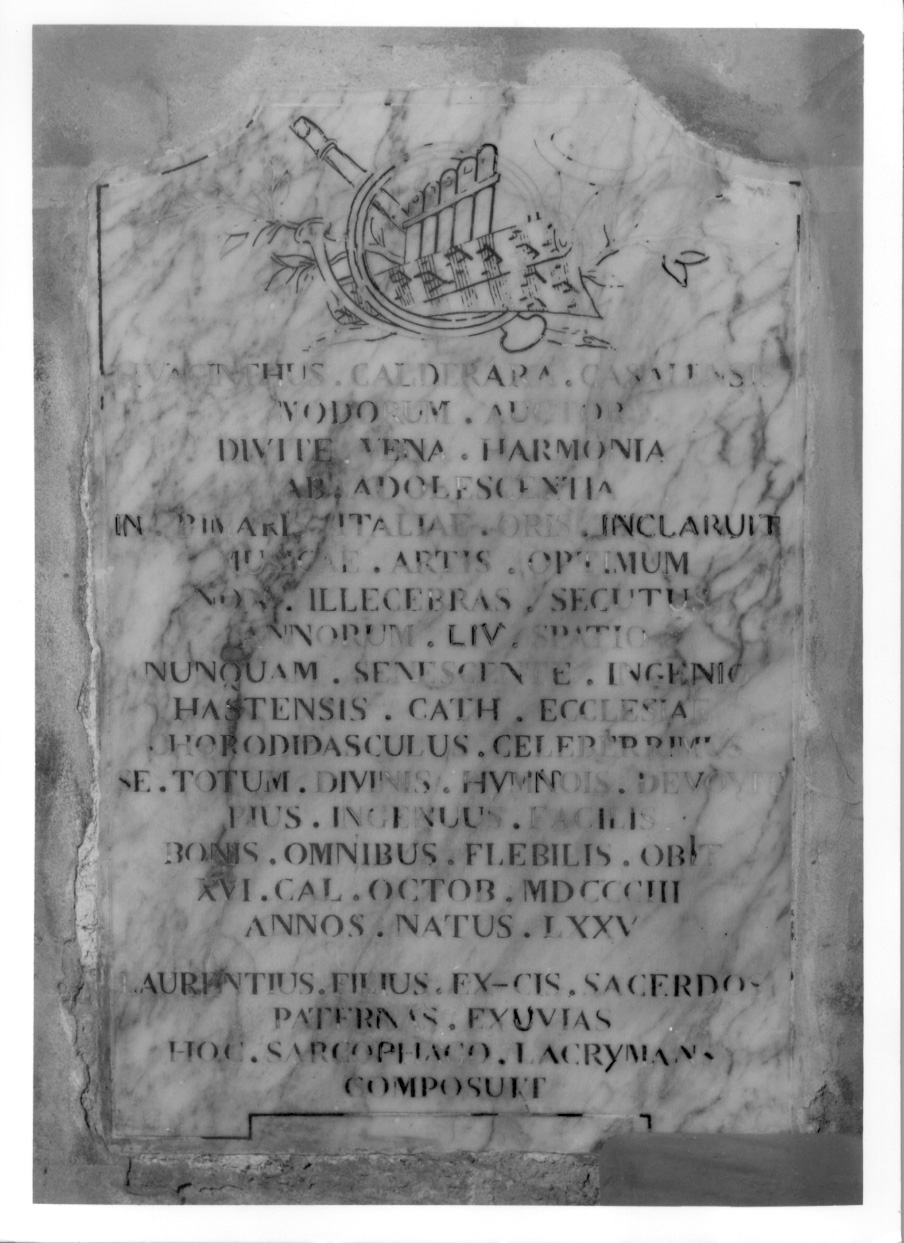 HYACINTHUS . CALDERARA . CASALENSIS
MODORUM . AUCTOR
DIVITE VENA . HARMONIA
AB . ADOLESCENTIA
IN . ITALIAE . ORIS . INCLARUIT
MUSICAE . ARTIS . OPTIMUM
ILLECEBRAS . SECUTUS
ANNORUM . LIV . SPATIO
NUNQUAM . SENESCENTE . INGENIO
HASTENSIS . CATH . ECCLESIAE
CHORODIDASCULUS . CELEBERRIMUS
SE . TOTUM . DIVINIS . HYMNOIS . DEVOVIT
PIUS . INGENUUS . FACILIS
BONIS . OMNIBUS . FLEBILIS . OBIT
XVI . CAL . OCTOB . MDCCCIII
ANNOS . NATUS . LXXV
LAURENTIUS . FILIUS . EX-CIS . SACERDOS
PATERNAS . EXUVIAS
HOC . SARCOPHACO . LACRYMANS
COMPOSUIT